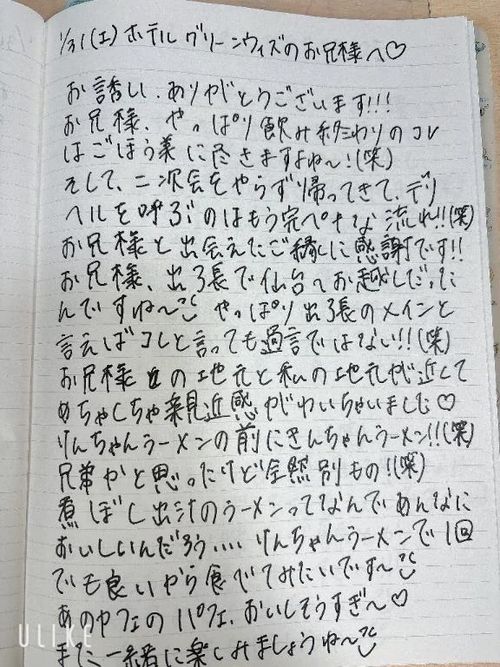 1/31(土)ホテルグリーンウィズのお兄様へ♡
お誘い、ありがとうございます!!!
お兄様、やっぱり飲み終わりのコレ
はごほう美に尽きますよね〜!(笑)
そして、二次会をやらず帰ってきて、デリ
ヘルを呼ぶのはもう完ペキな流れ!!(笑)
お兄様と出会えたご縁に感謝です!!
お兄様、出張で仙台へお越しだった
んですね〜 やっぱり出張のメインと
言えばコレと言っても過言ではない!!(笑)
お兄様の地元と私の地元が近くて
めちゃくちゃ親近感がわいちゃいました♡
りんちゃんラーメンの前にきんちゃんラーメン!!(笑)
兄弟かと思ったけど全然別もの!(笑)
煮ぼし出汁のラーメンってなんであんなに
おいしいんだろう.... りんちゃんラーメンで1回
でも良いから食べてみたいです〜
あのカフェのパフェ、おいしそうすぎ〜♡
また、一緒に楽しみましょうね〜
ULIKE